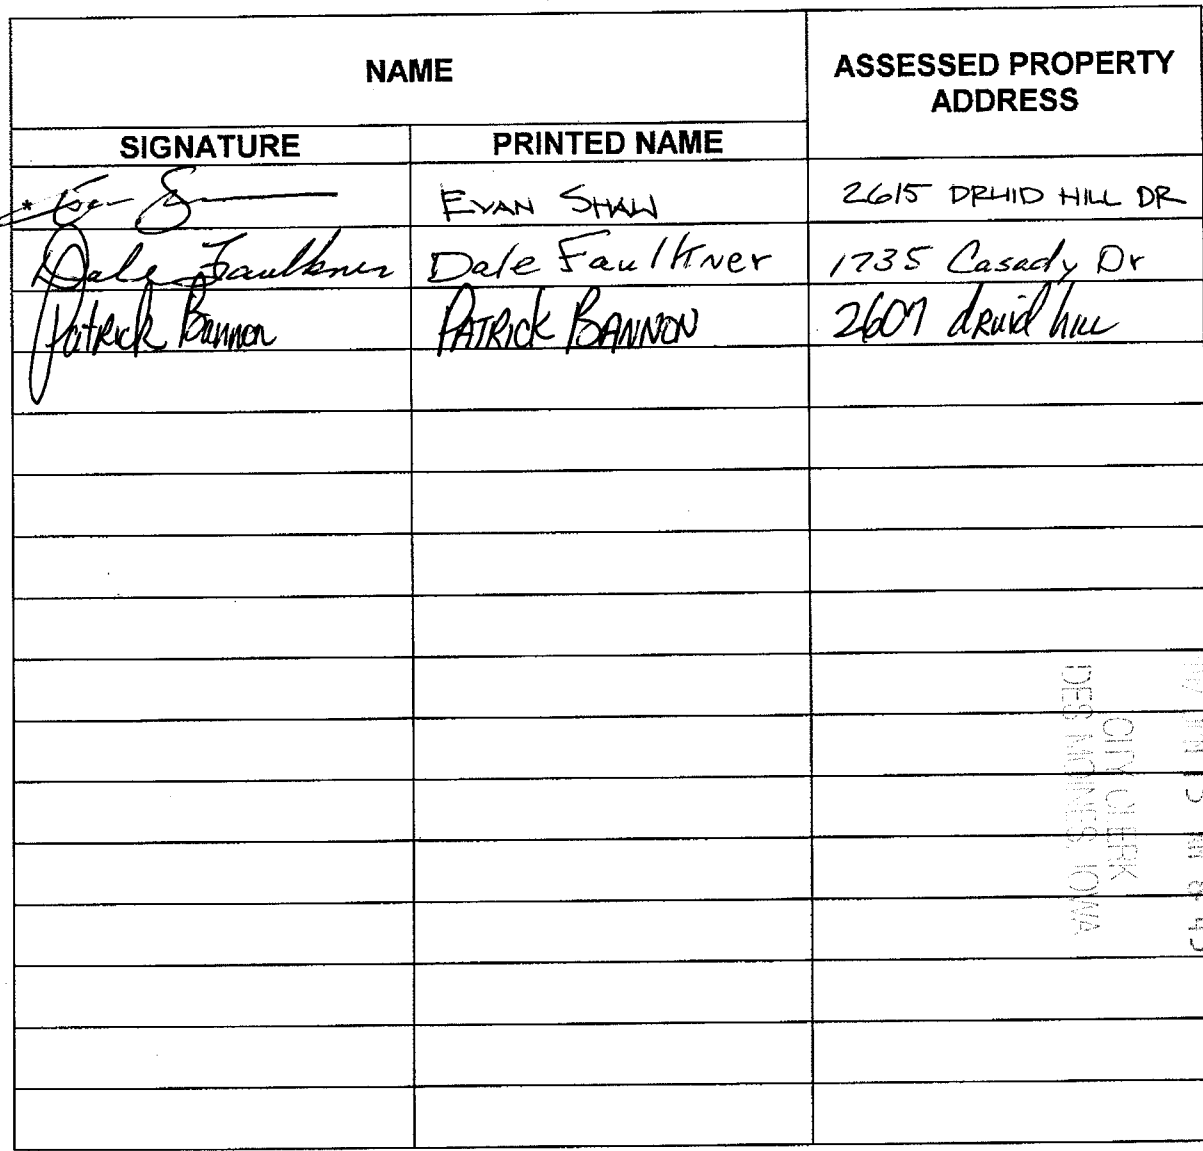 NAME
ASSESSED PROPERTY
ADDRESS
SIGNATURE
PRINTED NAME
*
EVAN SHAW
2615 DRUID HILL DR
Dale Faulkner
Dale Faulkner
1735 Casady Dr
Patrick Bannon
PATRICK BANNON
2607 druid hill
CITY CLERK
DES MOINES, IOWA